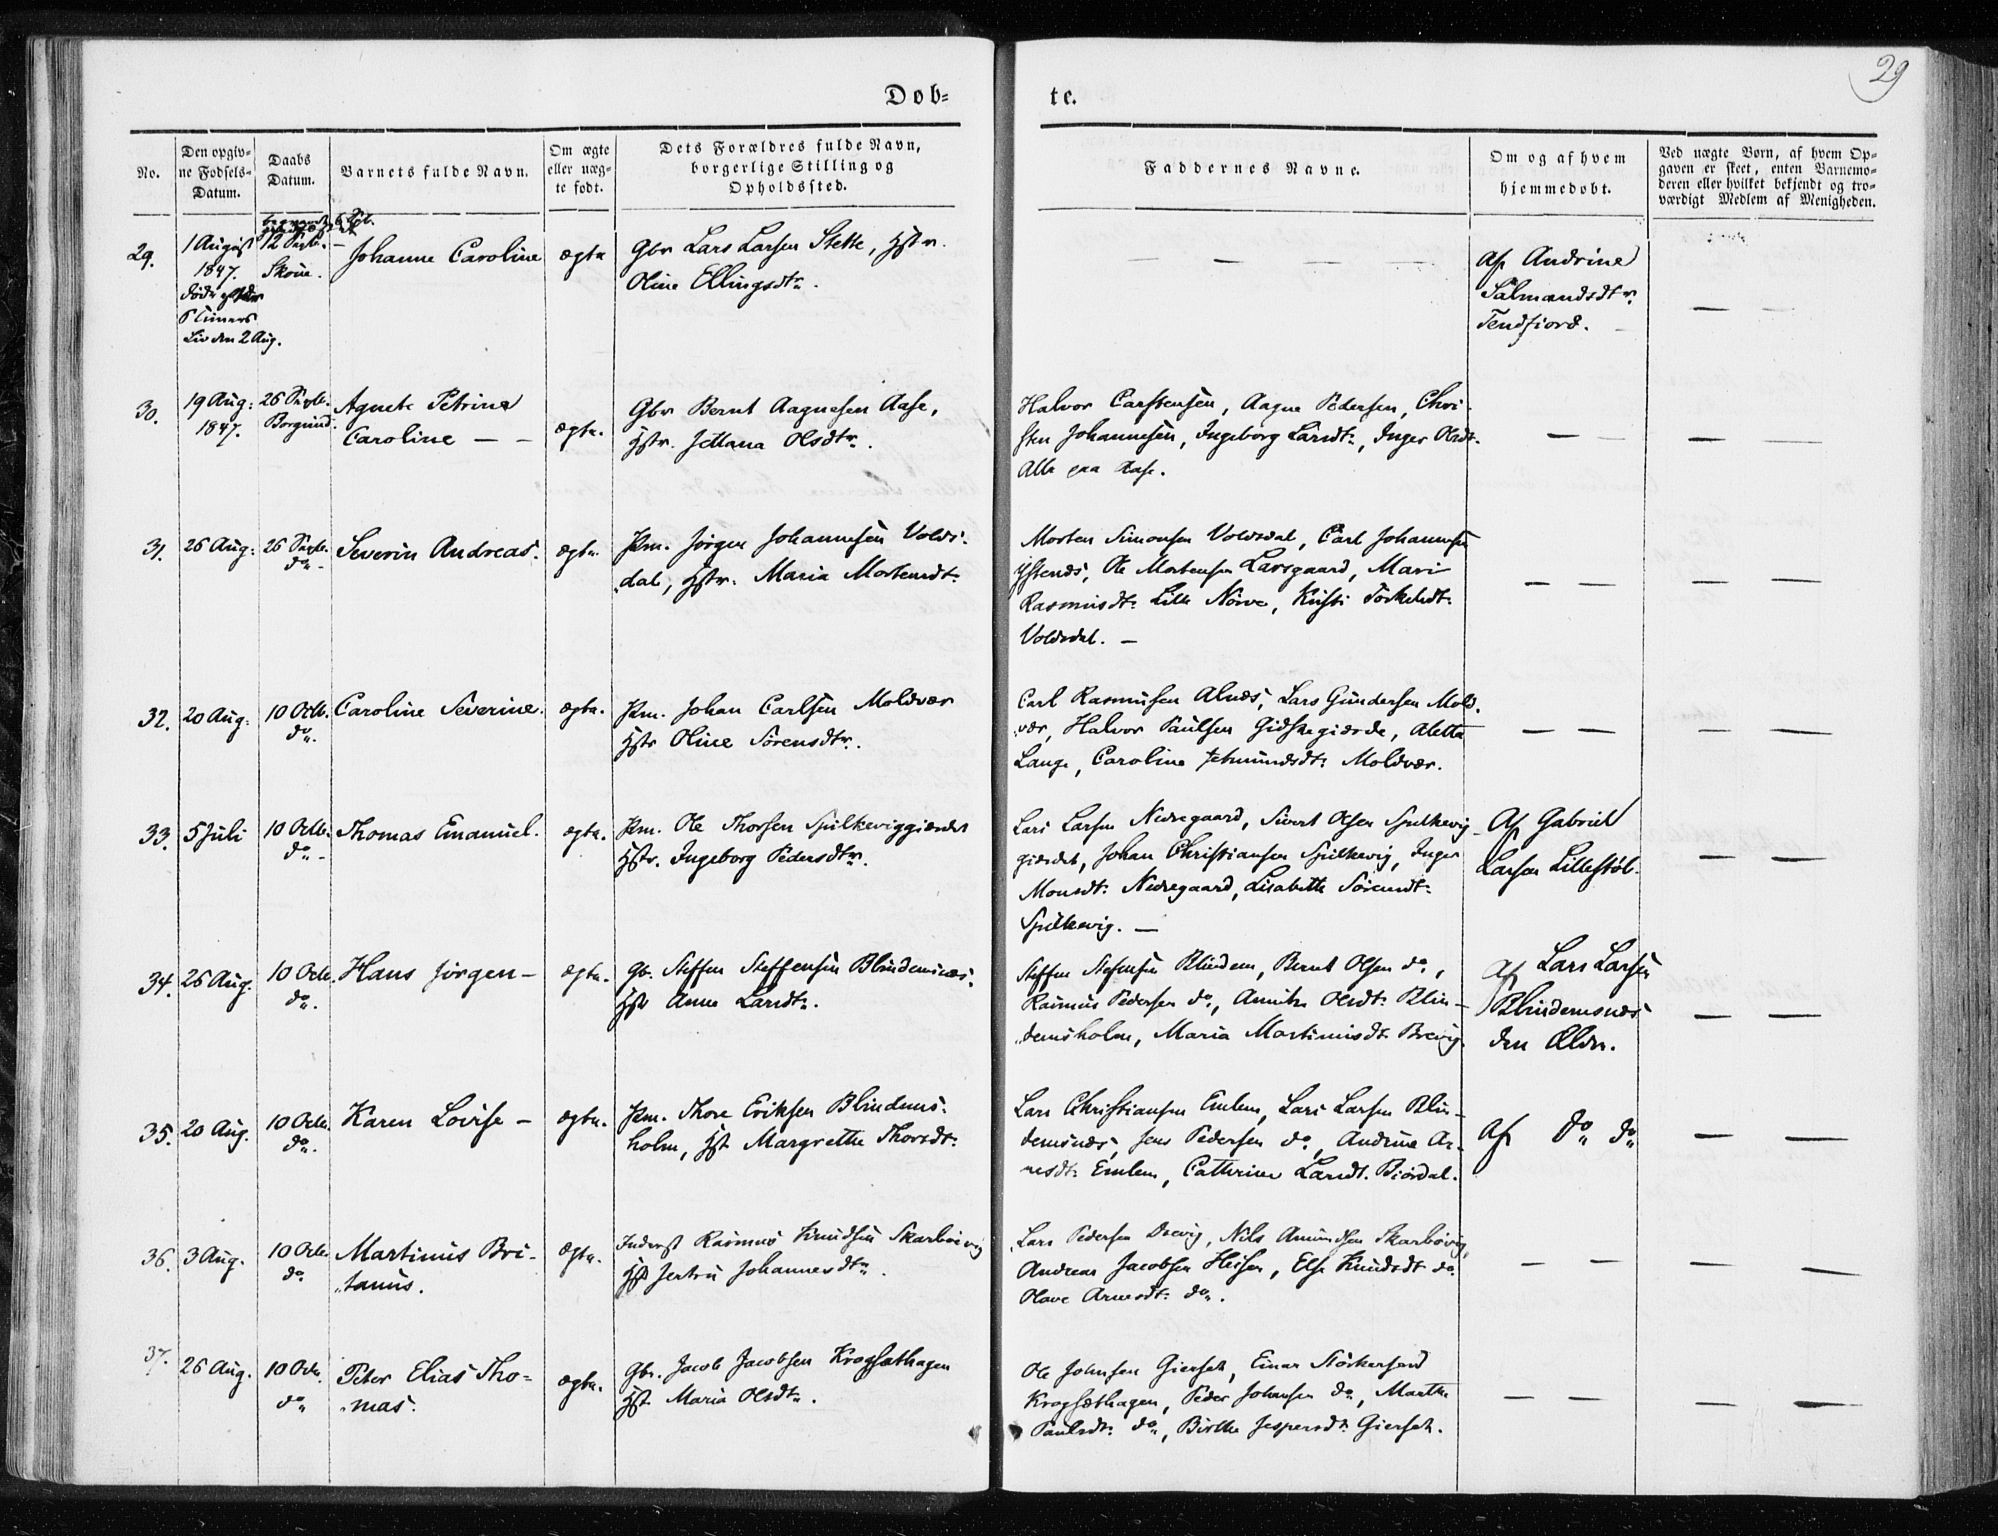 29
Døb=
te.
No.
Den opgiv=
ne Fødsels=
Datum.
Daabs
Datum.
Barnets fulde Navn.
Om ægte
eller uæg=
te født.
Dets Forældres fulde Navn,
borgerlige Stilling og
Opholdssted.
Faddernes Navne.
Om og af hvem
hjemmedøbt.
Ved uægte Børn, af hvem Op=
gaven er skeet, enten Barnemo=
deren eller hvilket bekjendt og tro=
værdigt Medlem af Menigheden.
29.
1 August
1847.
døde efter
Timers
Liv den 2 Aug.
12 Septbr.
Skoue.
Johanne Caroline
ægte
Gbr Lars Larsen Stette, Hstr.
Oline Ellingsdtr.
— — — —
Af Andrine
Salmandsdtr.
Tendfiord.
— —
30.
19 Aug:
1847.
26 Septb.
Borgund.
Agnete Petrine
Caroline — —
ægte.
Gbr Bernt Aagnesen Aase,
Hstr. Jettana Olsdtr.
Halvor Carstensen, Aagne Pedersen, Chri-
sten Johannesen, Ingeborg Larsdt:, Inger Olsdt.
Alle paa Aase.
— —
— —
31.
26 Aug:
26 Septb.
do.
Severin Andreas.
ægte.
Hm. Jørgen Johannesen Volds-
dal, Hstr. Maria Mortensdt:
Morten Simonsen Voldsdal, Carl Johannesen
Ystenes, Ole Mortensen Larsgaard, Mari
Rasmusdt: Lille Nørve, Kristi Torkelsdt:
Voldsdal. —
— —
— —
32.
20 Aug:
10 Octb.
do.
Caroline Severine.
ægte.
Hm. Johan Carlsen Moldvær
Hstr Oline Sørensdtr.
Carl Rasmusen Alnes, Lars Gundersen Mold-
vær, Halvor Paulsen Gidskegiærde, Alette
Lange, Caroline Asmundsdt: Moldvær.
— —
— —
33.
5 Juli
10 Octb.
do.
Thomas Emanuel.
ægte.
Hm. Ole Thorsen Spilkeviggiærdet
Hstr. Ingeborg Pedersdtr.
Lars Larsen Nedregaard, Sivert Olsen Spilkevig-
giærdet, Johan Christiansen Spilkevig, Inger
Monsdt: Nedregaard, Lisabeth Sørensdt:
Spilkevig. —
Af Gabriel
Larsen Lillestøl.
— —
34.
26 Aug.
10 Octb.
do.
Hans Jørgen —
ægte.
Gb. Steffen Steffensen Blindemsnes.
Hstr Anne Larsdt:.
Steffen Steffensen Blindem, Bernt Olsen do.,
Rasmus Pedersen do., Annike Olsdt: Blin-
demsholm, Maria Martinusdt. Brevig.
Af Lars Larsen
Blindemsnes
den Eldre.
— —
35.
20 Aug.
10 Octb.
do.
Karen Lovise —
ægte.
Hm. Thore Eriksen Blindems-
holm, Hst Margrethe Thorsdt:
Lars Christiansen Emlem, Lars Larsen Blin-
demsnes, Jens Pedersen do., Andrine Ar-
nesdt: Emlem, Catterine Larsdt. Biørdal.
Af do do
— —
36.
3 Aug.
10 Octb.
do.
Martinus Bri-
tanus.
ægte.
Inderst Rasmus Knudsen Skarbøvig
Hst Jertru Johannesdtr.
Lars Pedersen Brevig, Nils Amundsen Skarbøvig,
Andreas Jacobsen Heisen, Else Knudsdt do.
Olave Arnesdt: do.
— —
— —
37.
26 Aug.
10 Octb.
do
Peter Elias Tho=
mas.
ægte.
Gbr. Jacob Jacobsen Krogsæthagen
Hst. Maria Olsdtr.
Ole Johnsen Gierset, Einar Størkersen
Krogsæthagen, Peder Johansen do, Marthe
Paulsdt: do, Birthe Jespersdt: Gierset.
— —
— —